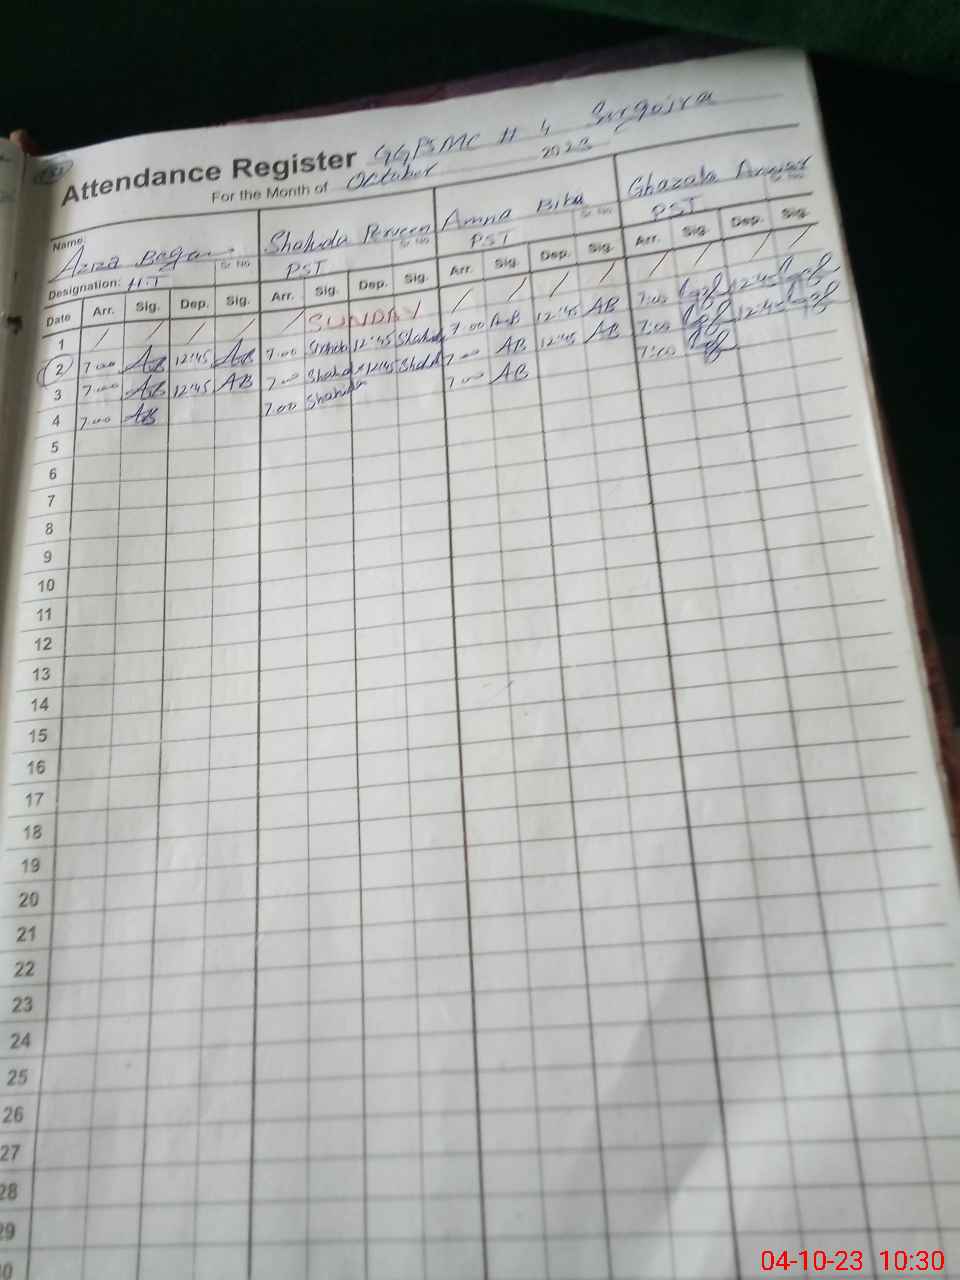 Attendance Register GGPSMC # 4 Surgojra
For the Month of October 2023
Name: Aziza Shahida Perveen Amna Biba Ghazala Anwar
Sr No Sr No Sr No Sr No
Designation: H.T PST PST PST
Date Arr. Sig. Dep. Sig. Arr. Sig. Dep. Sig. Arr. Sig. Dep. Sig. Arr. Sig. Dep. Sig.
1 / / / / / SUNDAY / / / / / / / /
2 7:00 AB 12:45 AB 7:00 Shahida 12:45 Shahida 7:00 AB 12:45 AB 7:00 12:45
3 7:00 AB 12:45 AB 7:00 Shahida 12:45 Shahida 7:00 AB 12:45 AB 7:00 12:45
4 7:00 AB 7:00 Shahida 7:00 AB 7:00
5
6
7
8
9
10
11
12
13
14
15
16
17
18
19
20
21
22
23
24
25
26
27
28
29
04-10-23 10:30